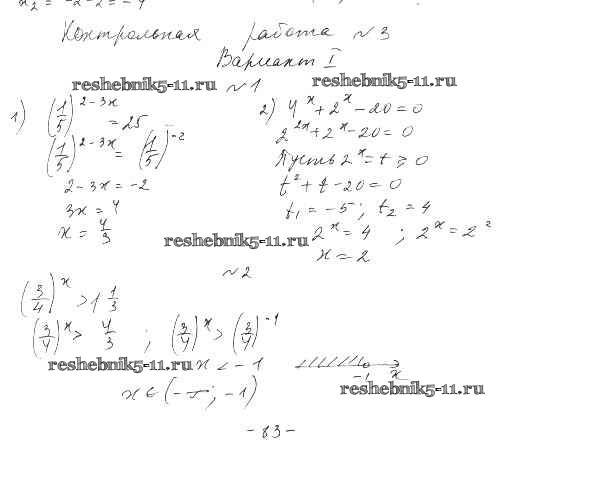 x₂ = -2-2 = -4
Контрольная работа №3
Вариант I
reshebnik5-11.ru №1 reshebnik5-11.ru
1) (1/5)^(2-3x) = 25
(1/5)^(2-3x) = (1/5)^(-2)
2-3x = -2
3x = 4
x = 4/3
2) 4^x + 2^x - 20 = 0
2^(2x) + 2^x - 20 = 0
Пусть 2^x = t > 0
t² + t - 20 = 0
t₁ = -5; t₂ = 4
reshebnik5-11.ru 2^x = 4 ; 2^x = 2²
x = 2
№2
(3/4)^x > 1 1/3
(3/4)^x > 4/3 ; (3/4)^x > (3/4)^(-1)
reshebnik5-11.ru x < -1
-1 x
x ∈ (-∞; -1) reshebnik5-11.ru
-83-